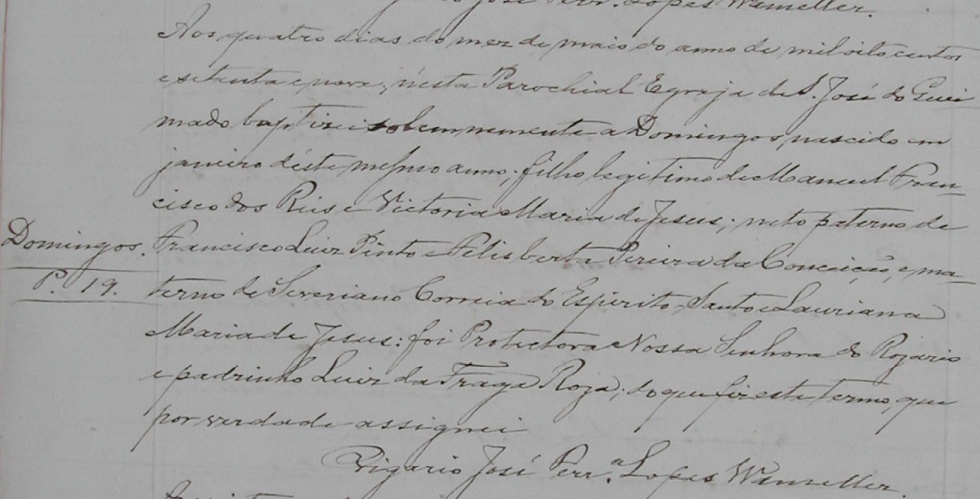 José Ferr. Lopes Wameller.
Aos quatro dias do mez de maio do anno de mil oito centos
e setenta e nove, n'esta Parochial Egreja de S. José do Quei
mado baptizei solemnemente a Domingos, nascido em
janeiro d'este mesmo anno, filho legitimo de Manoel Fran-
cisco dos Reis e Victoria Maria de Jesus; neto paterno de
Domingos.
P. 19.
Francisco Luiz Pinto e Felisberta Pereira da Conceição, e ma-
terno de Severiano Correia do Espirito Santo e Lauriana
Maria de Jesus: foi Protectora Nossa Senhora do Rozario
e padrinho Luiz da Fraga Roza; do que fiz este termo, que
por verdade assignei
Vigario José Ferr.ª Lopes Wameller